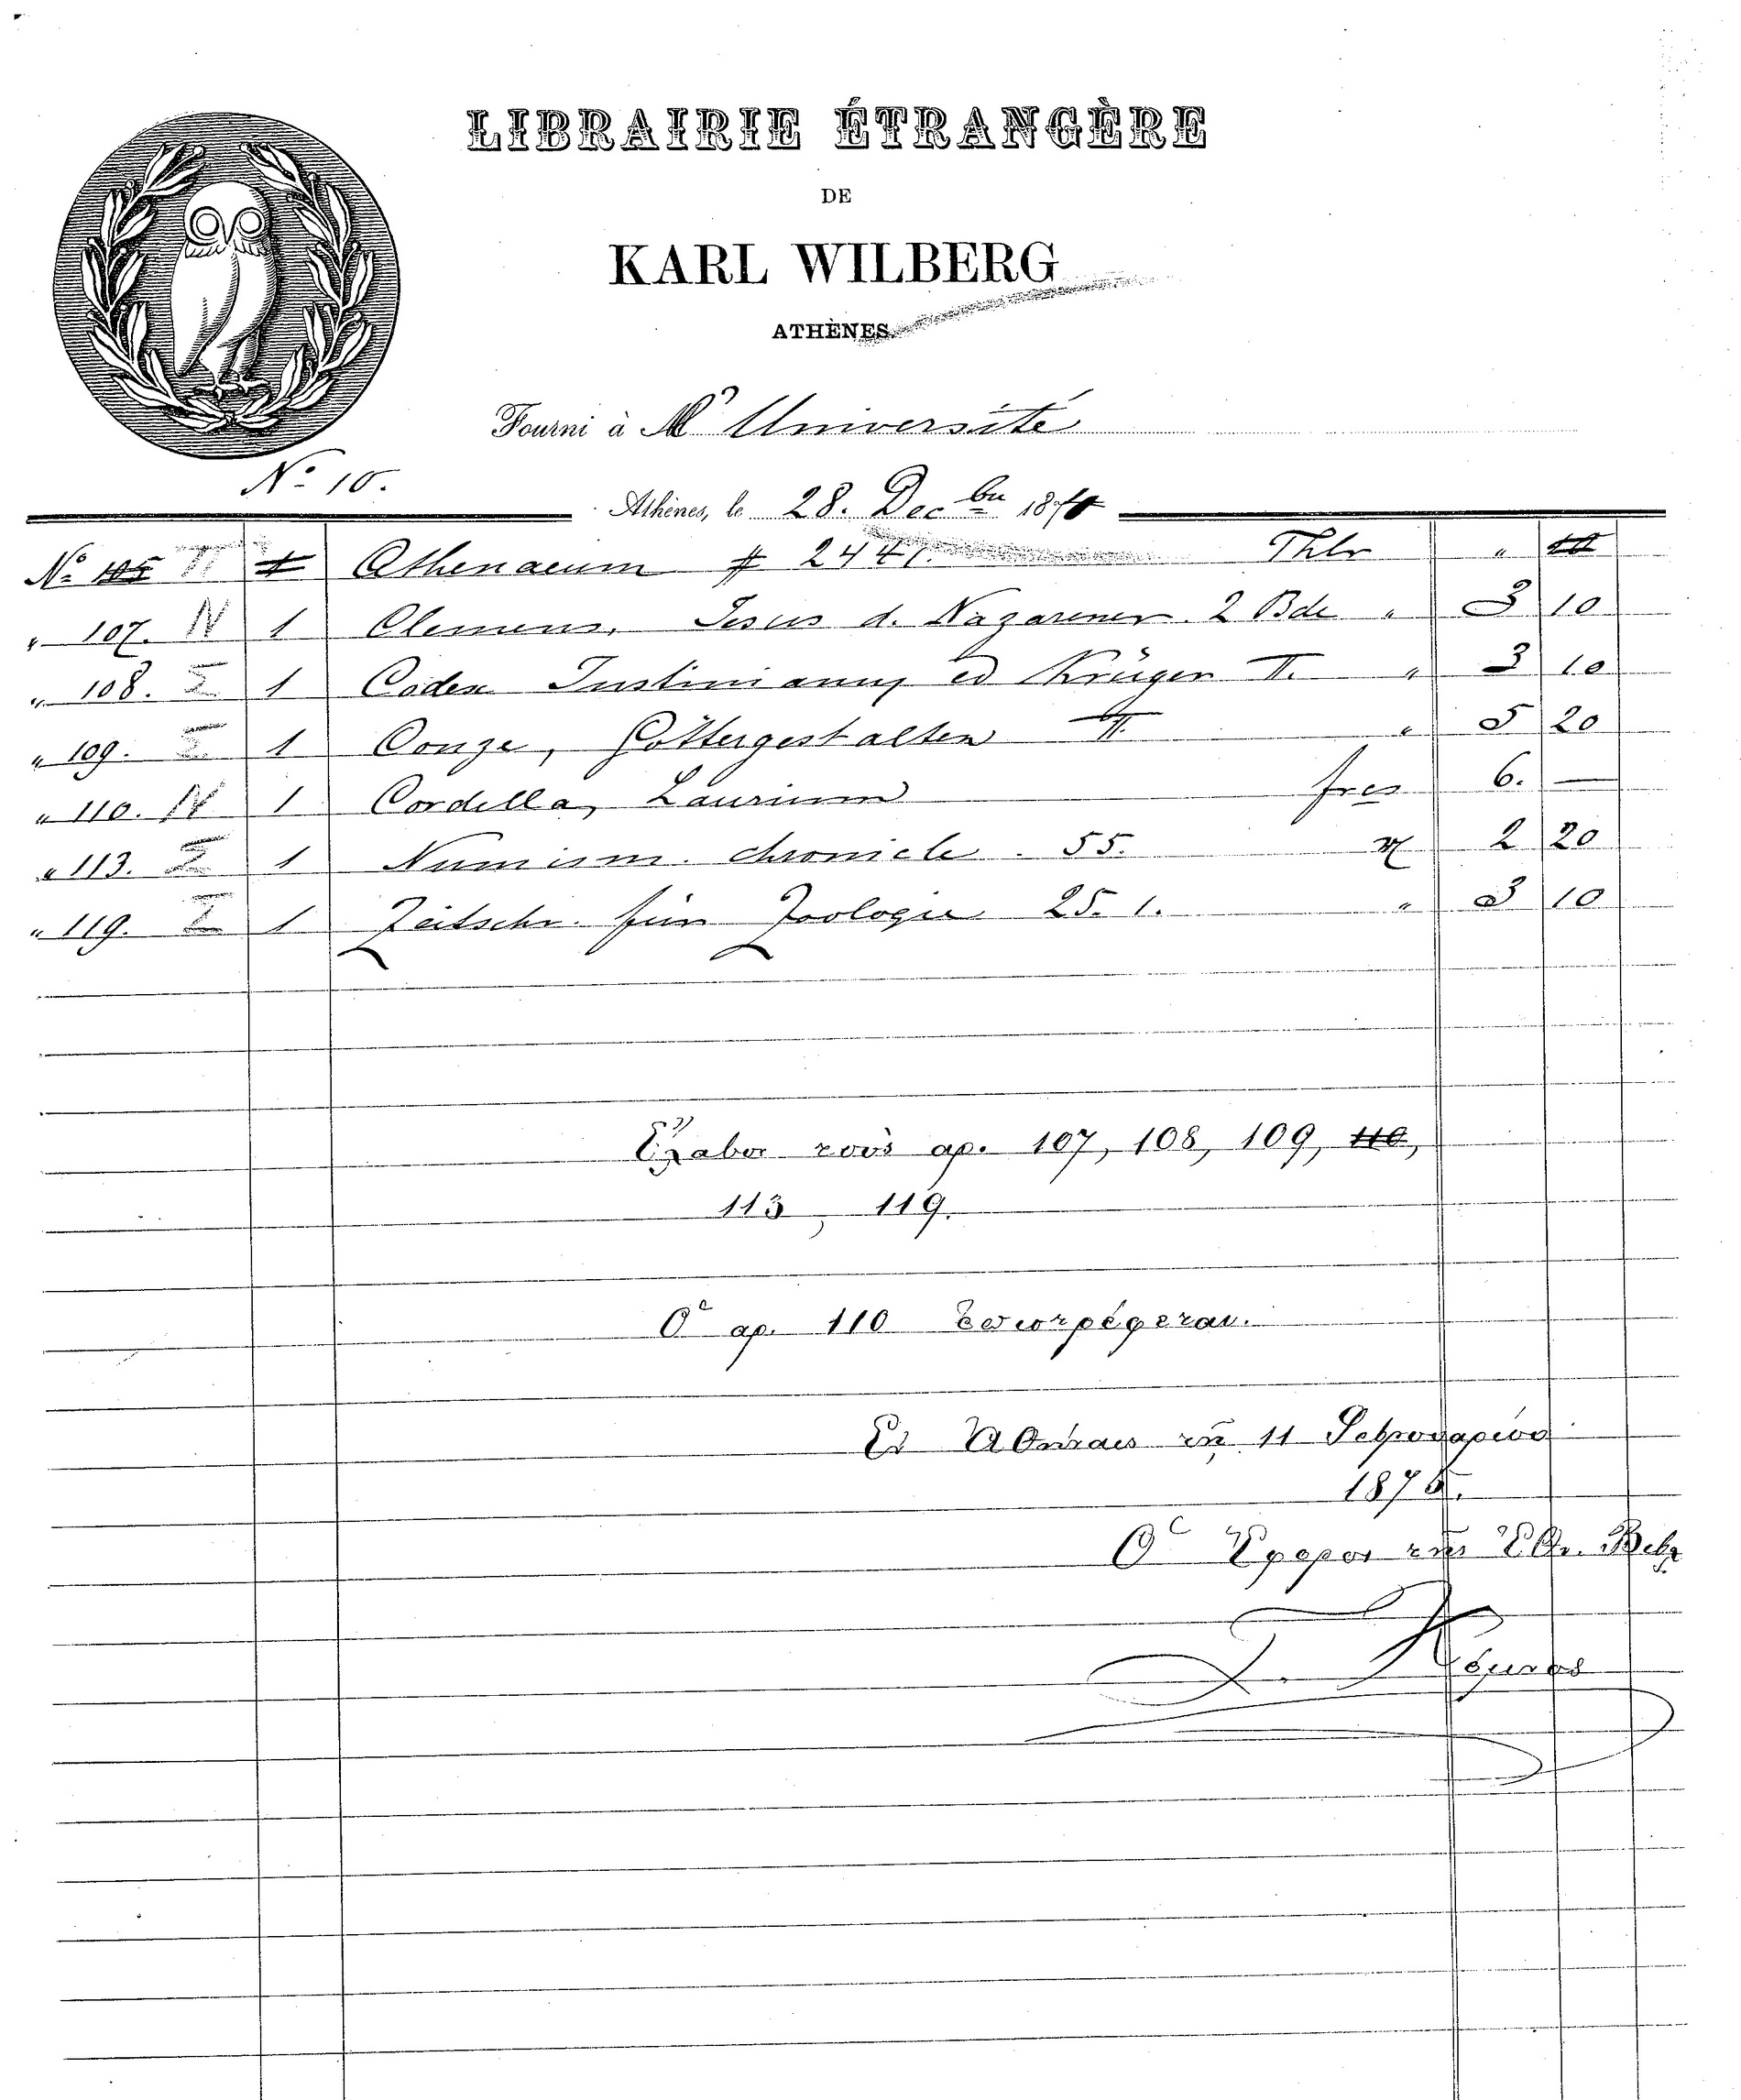 LIBRAIRIE ÉTRANGÈRE
DE
KARL WILBERG
ATHÈNES
Fourni à Mr Université
No 10.
Athènes, le 28. Decbre 187
No 105 Π 1 Athenaeum # 2447. Thlr "
" 107. N 1 Clemens, Jesus d. Nazarener. 2 Bde " 3 10
" 108. Σ 1 Codex Justinianus ed Krüger II. " 3 10
" 109. Σ 1 Conze, Göttergestalten II. " 5 20
" 110. N 1 Cordella, Laurium frcs 6. —
" 113. Σ 1 Numism. chronicle. 55. 2 20
" 119. Σ 1 Zeitschr. für Zoologie 25. 1. " 3 10
Ἔλαβον τοὺς ἀρ. 107, 108, 109, 110,
113, 119.
Ὁ ἀρ. 110 ἐπιστρέφεται.
Ἐν Ἀθήναις τῇ 11 Φεβρουαρίου
1875.
Ὁ Ἔφορος τῆς Ἐθν. Βιβλ